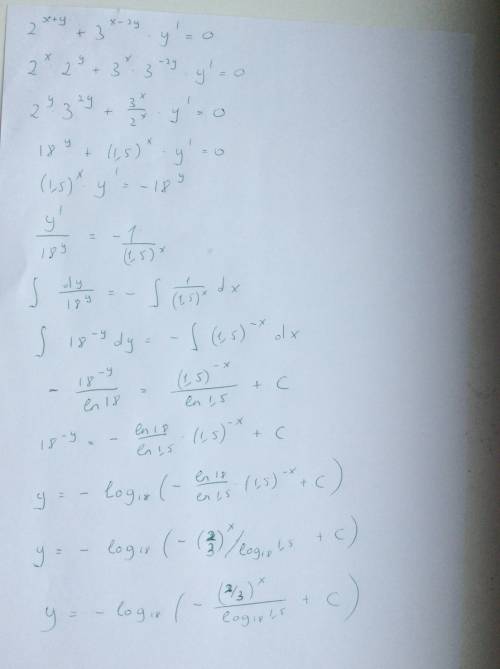 2^{x+y} + 3^{x-2y} · y' = 0
2^x · 2^y + 3^x · 3^{-2y} · y' = 0
2^y · 3^{2y} + 3^x/2^x · y' = 0
18^y + (1,5)^x · y' = 0
(1,5)^x · y' = -18^y
y'/18^y = - 1/(1,5)^x
∫ dy/18^y = - ∫ 1/(1,5)^x dx
∫ 18^{-y} dy = - ∫ (1,5)^{-x} dx
- 18^{-y}/ln18 = (1,5)^{-x}/ln1,5 + C
18^{-y} = - ln18/ln1,5 · (1,5)^{-x} + C
y = - log₁₈ (- ln18/ln1,5 · (1,5)^{-x} + C)
y = - log₁₈ (- (2/3)^x / log₁₈1,5 + C)
y = - log₁₈ (- (2/3)^x / log₁₈1,5 + C)